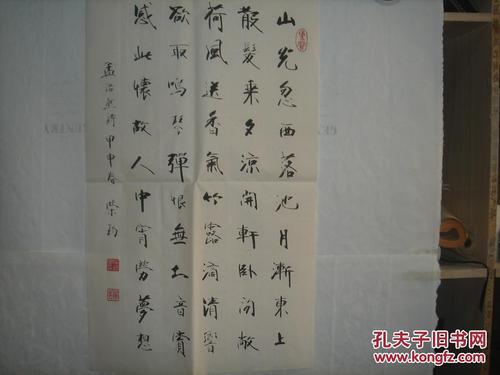 山光忽西落池月漸東上
散髮乘夕涼開軒臥閑敞
荷風送香氣竹露滴清響
欲取鳴琴彈恨無音賞
感此懷故人中宵勞夢想
孟浩然詩甲申春
孔夫子旧书网
www.kongfz.com